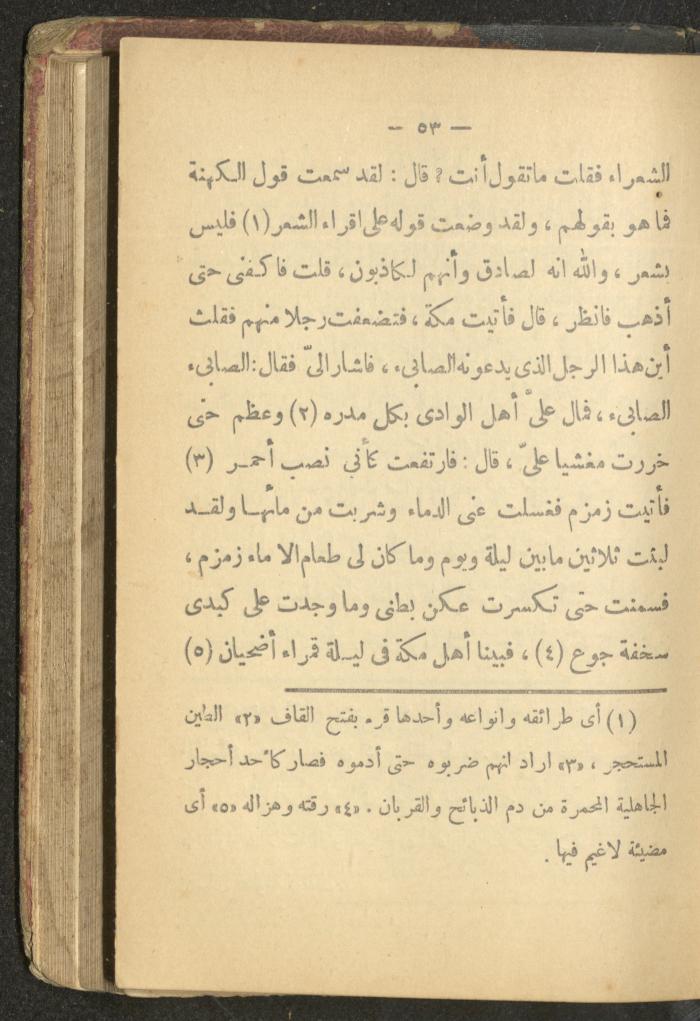 — ٥٣ —
الشعراء فقلت ماتقول أنت ؟ قال : لقد سمعت قول الكهنة
فما هو بقولهم ، ولقد وضعت قوله على اقراء الشعر (١) فليس
بشعر ، والله انه لصادق وأنهم لكاذبون ، قلت فاكفنى حتى
أذهب فانظر ، قال فأتيت مكة ، فتضعفت رجلا منهم فقلت
أين هذا الرجل الذى يدعونه الصابىء ، فاشار الىّ فقال : الصابىء
الصابىء ، فمال علىّ أهل الوادى بكل مدره (٢) وعظم حتى
خررت مغشيا علىّ ، قال : فارتفعت كأنى نصب أحمر (٣)
فأتيت زمزم فغسلت عنى الدماء وشربت من مائها ولقد
لبثت ثلاثين مابين ليلة ويوم وما كان لى طعام الا ماء زمزم ،
فسمنت حتى تكسرت عكن بطنى وما وجدت على كبدى
سخفة جوع (٤) ، فبينا أهل مكة فى ليلة قمراء أضحيان (٥)
(١) أى طرائقه وانواعه وأحدها قرء بفتح القاف «٢» الطين
المستحجر ، «٣» اراد انهم ضربوه حتى أدموه فصار كأحد أحجار
الجاهلية المحمرة من دم الذبائح والقربان . «٤» رقته وهزاله «٥» أى
مضيئة لاغيم فيها .